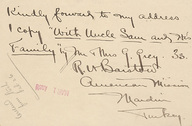 Kindly forward to my address
1 copy "With Uncle Sam and His
Family" by Mr & Mrs G. Grey . 3s.
R W Barstow
American Mission
Mardin
Turkey